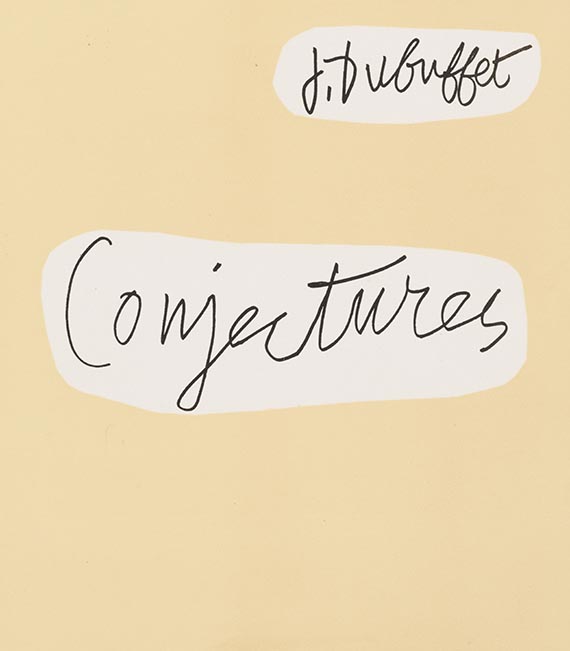 J. Dubuffet
Conjectures